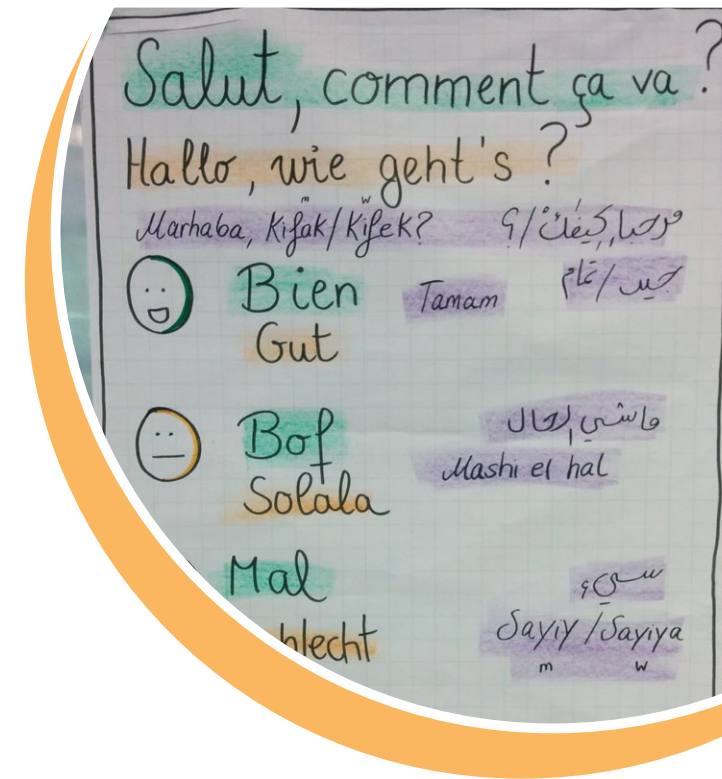 Salut, comment ça va ?
Hallo, wie geht's ?
m w
Marhaba, Kifak/Kifek? مرحبا, كيفك/؟
Bien Tamam جيد/تمام
Gut
Bof ماشي الحال
Solala Mashi el hal
Mal سيء
hlecht Sayiy/Sayiya
m w